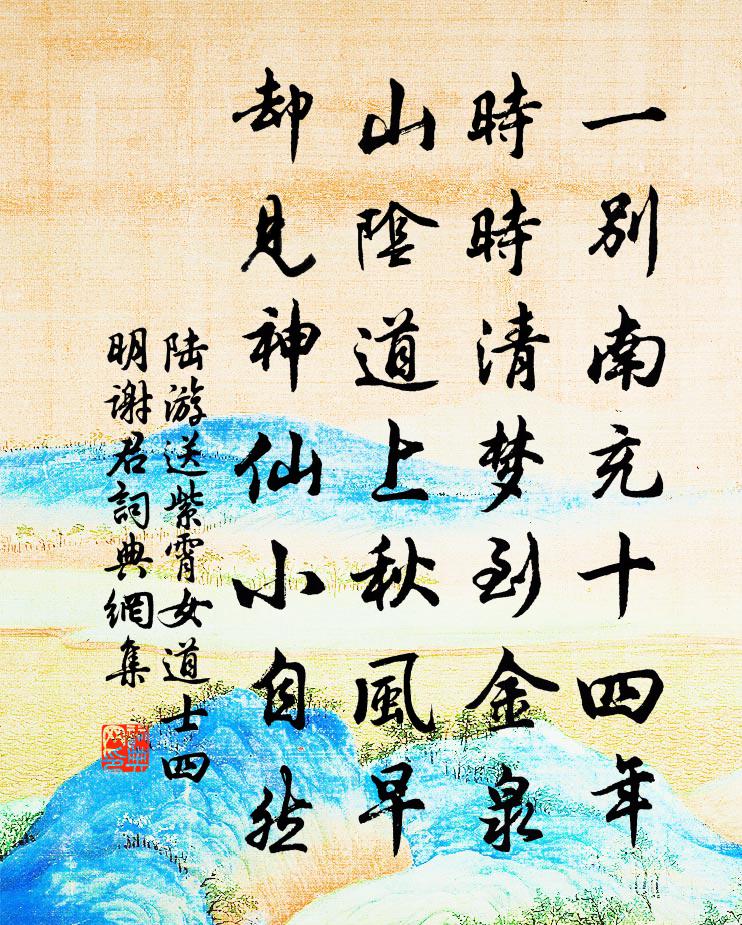 一别南充十四年
時時清梦到金泉
山陰道上秋風早
却見神仙小自然
陆游送紫霄女道士四
明谢君詞典網集